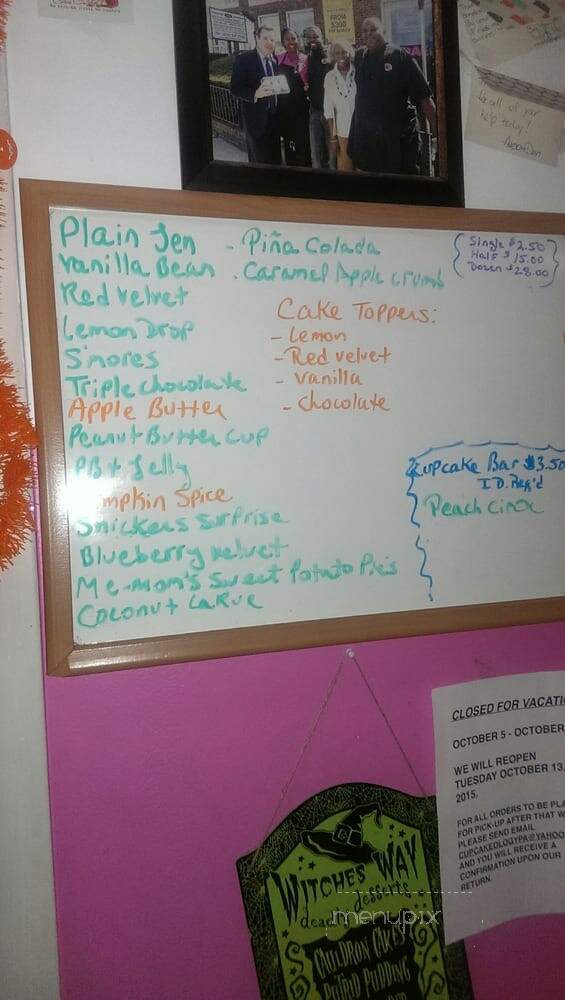 FROM
$200
for all of your
help today!
Plain Jen
Vanilla Bean
Red Velvet
Lemon Drop
S'mores
Triple Chocolate
Apple Butter
Peanut Butter Cup
PB & Jelly
mpkin Spice
Snickers Surprise
Blueberry Velvet
Me-Mom's Sweet Potato Pie's
Coconut LaRue
- Piña Colada
- Caramel Apple Crumb
Cake Toppers:
- Lemon
- Red velvet
- Vanilla
- Chocolate
Single $2.50
Half $15.00
Dozen $28.00
Cupcake Bar $3.50
I.D. Req'd
Peach Ciroc
CLOSED FOR VACATI
OCTOBER 5 - OCTOBER
WE WILL REOPEN
TUESDAY OCTOBER 13,
2015.
FOR ALL ORDERS TO BE PLA
FOR PICK-UP AFTER THAT W
PLEASE SEND EMAIL
CUPCAKEOLOGYPA@YAHOO
AND YOU WILL RECEIVE A
CONFIRMATION UPON OUR
RETURN.
WITCHES WAY
deadly desserts
CAULDRON CAKES
PUTRID PUDDING
menupix